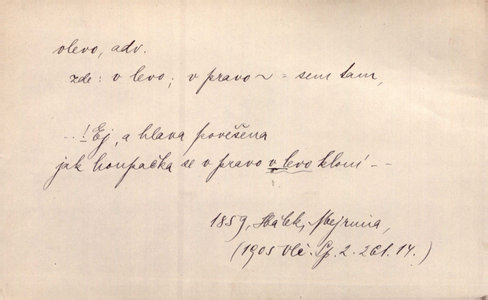 vlevo, adv.
zde: v levo; v pravo ~ = sem tam,
--! Ej, a hlava pověšena
jak houpačka se v pravo v levo kloní --
1859, Hálek, Mejrima,
(1905 Vlč. Sp. 2. 261.14.)